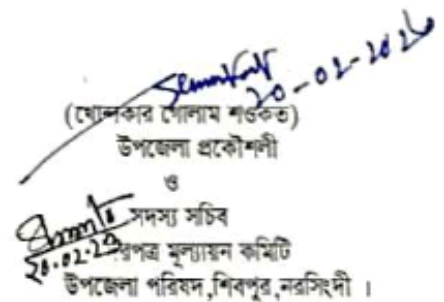 20-02-2026
(খোন্দকার গোলাম শওকত)
উপজেলা প্রকৌশলী
ও
সদস্য সচিব
20.02.23
মূল্যায়ন কমিটি
উপজেলা পরিষদ,শিবপুর,নরসিংদী ।